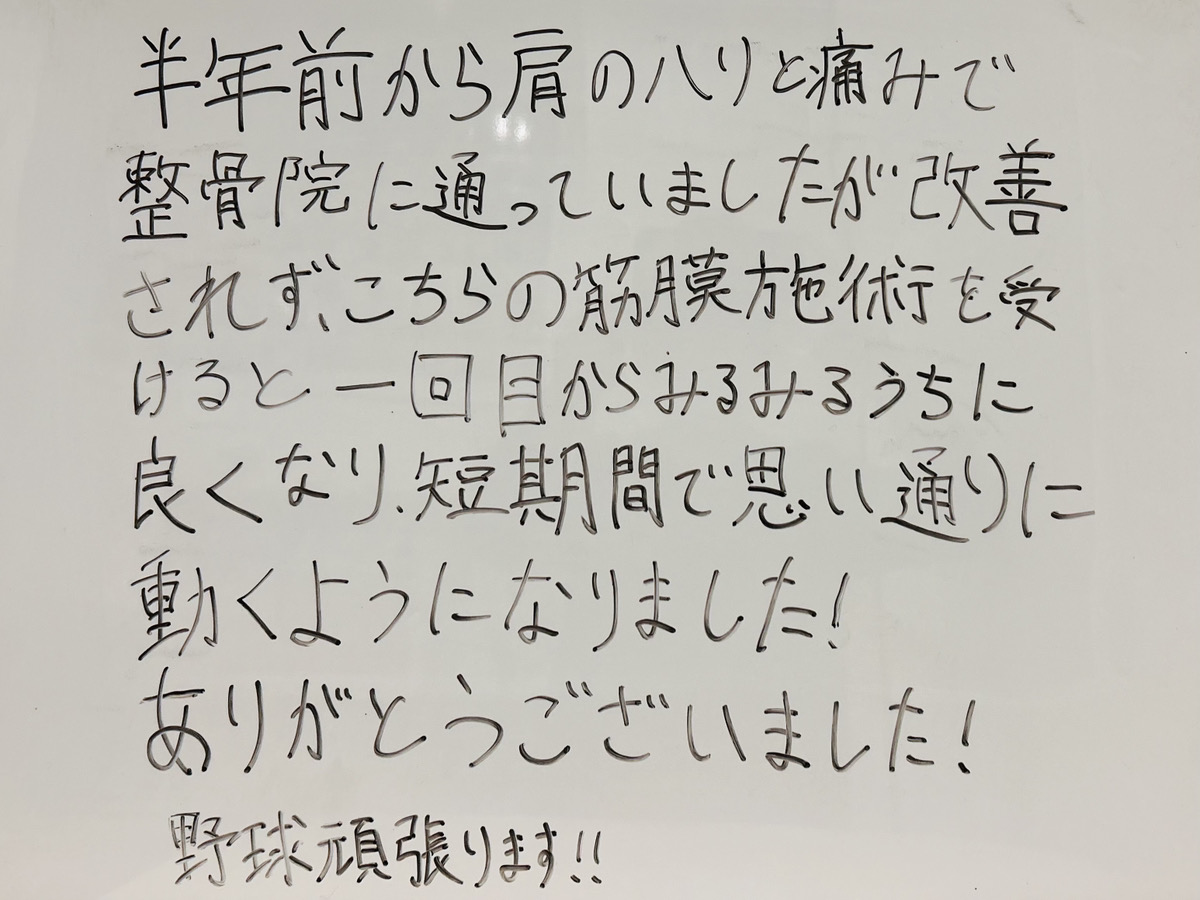 半年前から肩のハリと痛みで
整骨院に通っていましたが改善
されず、こちらの筋膜施術を受
けると一回目からみるみるうちに
良くなり、短期間で思い通りに
動くようになりました!
ありがとうございました!
野球頑張ります!!